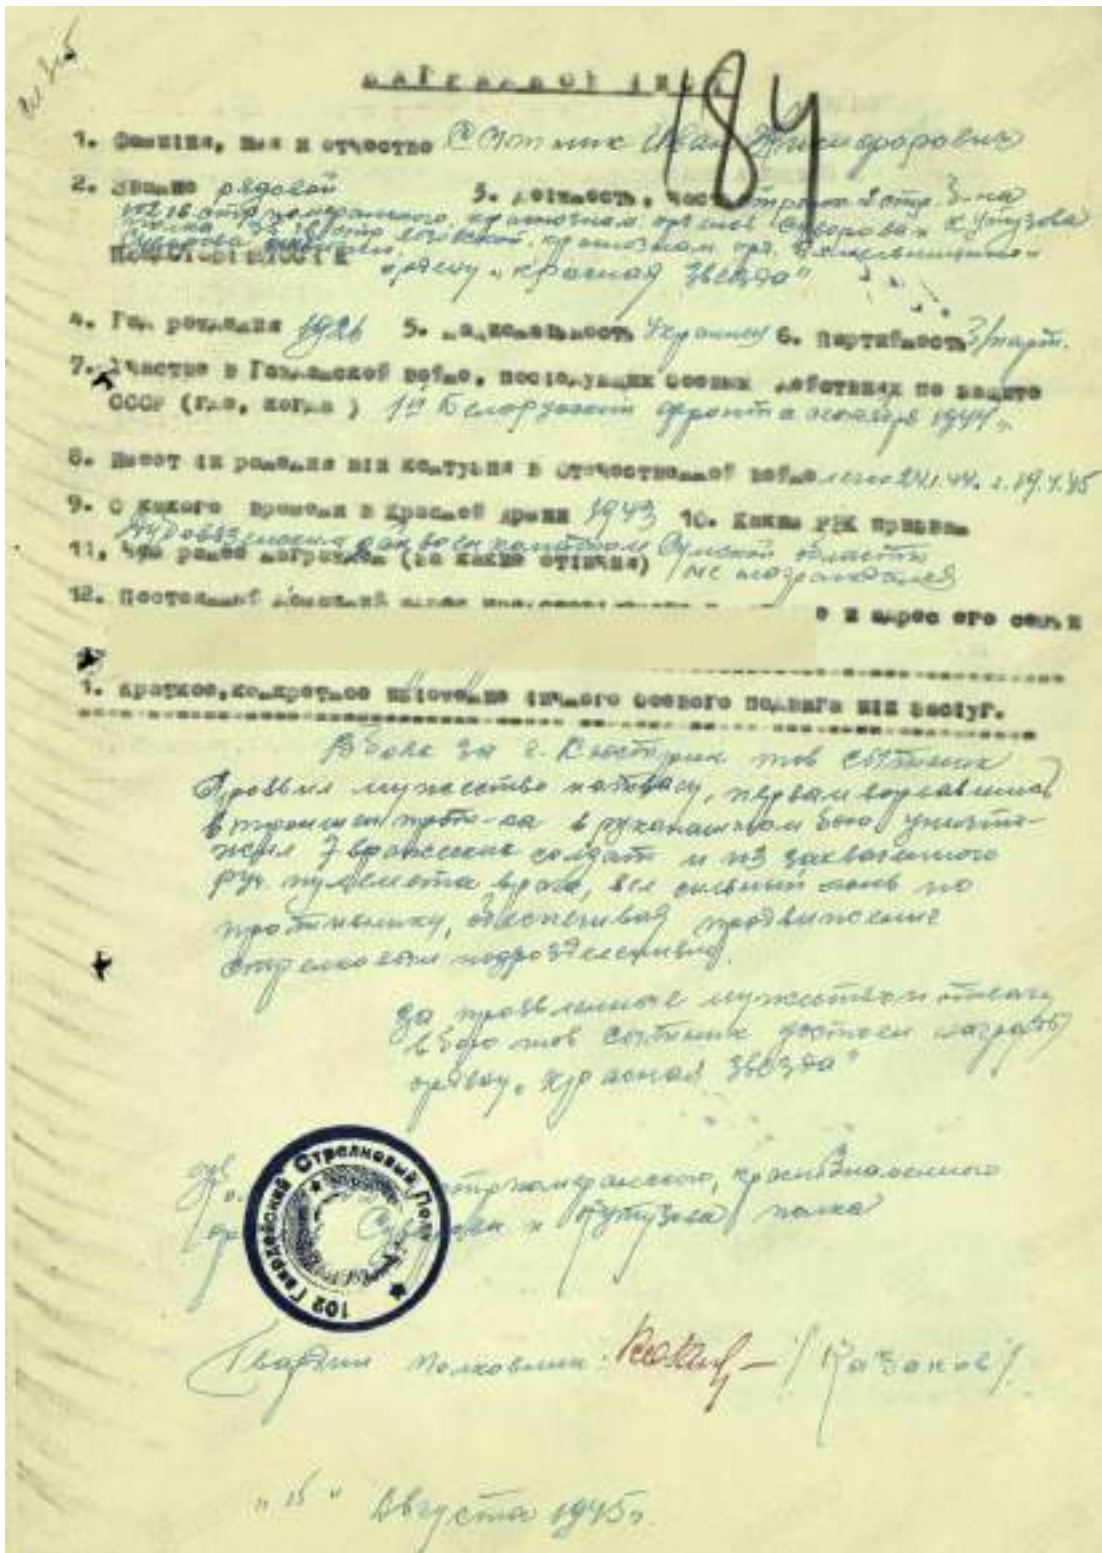 НАГРАДНОЙ ЛИСТ
184
1. Фамилия, имя и отчество Сотник Иван Никифорович
2. Звание рядовой 3. Должность, часть стрелок 2 стр. б-на
102 гв стр померанского, краснознам. орденов Суворова и Кутузова
полка
ордену "Красная Звезда"
4. Год рождения 1926 5. Национальность Украинец 6. Партийность б/парт.
7. Участие в Гражданской войне, последующих боевых действиях по защите
СССР (где, когда) 1й Белорусский фронт с октября 1944 г.
8. Имеет ли ранения или контузии в Отечественной войне
9. С какого времени в Красной Армии 1943 10. Каким РВК призван
райвоенкоматом Сумской области
11. Чем ранее награжден (за какие отличия) не награждался
12. Постоянный домашний адрес и адрес его семьи
1. Краткое, конкретное изложение личного боевого подвига или заслуг.
В бою за г. Кюстрин тов Сотник
проявил мужество и отвагу, первым ворвавшись
в траншеи прот-ка в рукопашном бою уничто-
жил 7 вражеских солдат и из захваченного
руч пулемета врага, вел сильный огонь по
противнику, обеспечивая продвижение
стрелковых подразделений.
За проявленные мужество и отвагу
в бою тов Сотник достоин награды
ордену "Красная Звезда"
стр померанского, краснознаменного
Суворова и Кутузова полка
102 Гвардейский Стрелковый Полк
Гвардии полковник /Казаков/
Августа 1945 г.